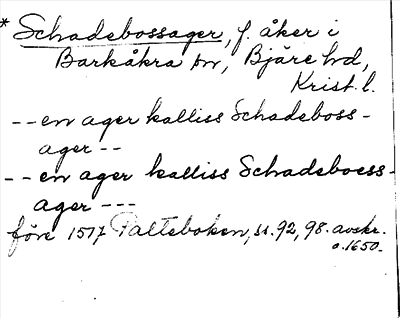 * Schadebossager, f. åker i
Barkåkra sn, Bjäre hd,
Krist. l.
-- en ager kalliss Schadeboss-
ager --
-- en ager kalliss Schadeboess-
ager ---
före 1517 Palteboken, s. 92, 98. avskr.
o. 1650.